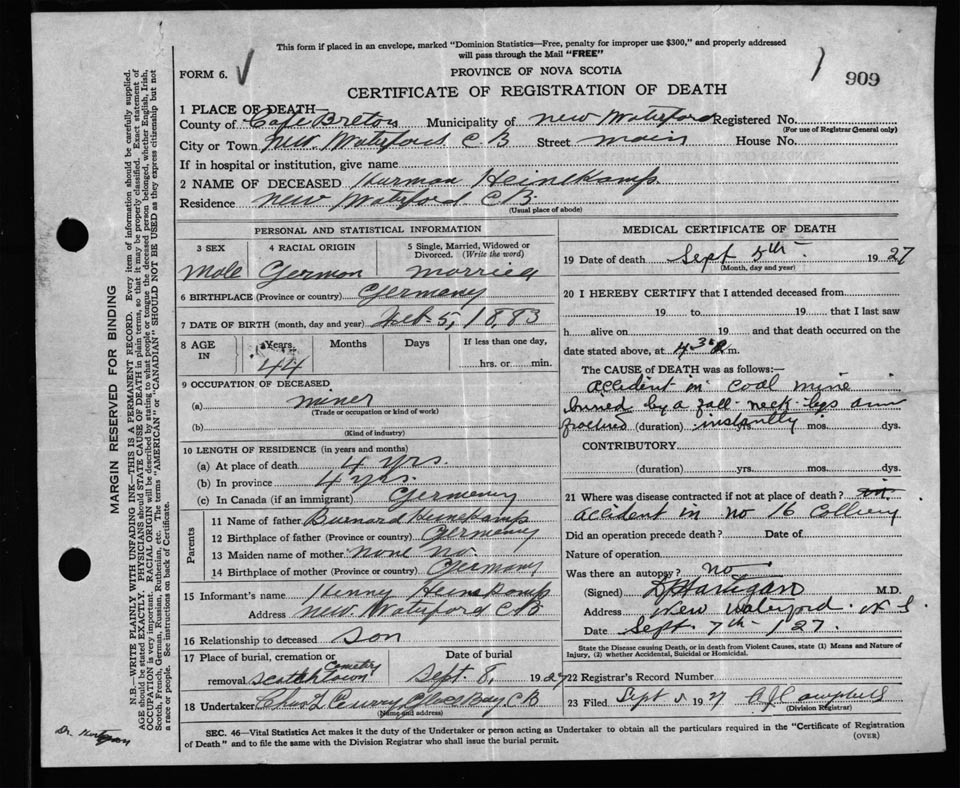 This form if placed in an envelope, marked "Dominion Statistics—Free, penalty for improper use $300," and properly addressed
will pass through the Mail "FREE"
FORM 6. V
PROVINCE OF NOVA SCOTIA
909
CERTIFICATE OF REGISTRATION OF DEATH
1 PLACE OF DEATH—
County of Cape Breton Municipality of New Waterford Registered No.
(For use of Registrar General only)
City or Town New Waterford C B Street Main House No.
If in hospital or institution, give name
2 NAME OF DECEASED Hurman Heinekamp
Residence New Waterford C B.
(Usual place of abode)
PERSONAL AND STATISTICAL INFORMATION
3 SEX 4 RACIAL ORIGIN 5 Single, Married, Widowed or Divorced. (Write the word)
Male German married
6 BIRTHPLACE (Province or country) Germany
7 DATE OF BIRTH (month, day and year) Feb. 5, 1883
8 AGE IN Years Months Days If less than one day,
44 hrs. or min.
9 OCCUPATION OF DECEASED
(a) miner
(Trade or occupation or kind of work)
(b)
(Kind of industry)
10 LENGTH OF RESIDENCE (in years and months)
(a) At place of death 4 yrs.
(b) In province 4 yrs.
(c) In Canada (if an immigrant) Germany
Parents
11 Name of father Burnard Heinekamp
12 Birthplace of father (Province or country) Germany
13 Maiden name of mother none no.
14 Birthplace of mother (Province or country) Germany
15 Informant's name Henny Heinekamp
Address New Waterford C B
16 Relationship to deceased son
17 Place of burial, cremation or removal Scotchtown Cemetery
Date of burial
Sept. 8, 1927
18 Undertaker Chas L Curry Glace Bay, C B
(Name and address)
MEDICAL CERTIFICATE OF DEATH
19 Date of death Sept 5th 1927
(Month, day and year)
20 I HEREBY CERTIFY that I attended deceased from
19 to 19 that I last saw
h alive on 19 and that death occurred on the
date stated above, at 4 30 a m.
The CAUSE of DEATH was as follows:—
Accident in Coal mine
buried by a fall- neck- legs arm
fractured (duration) instantly yrs. mos. dys.
CONTRIBUTORY
(duration) yrs. mos. dys.
21 Where was disease contracted if not at place of death? in
accident in no 16 Colliery
Did an operation precede death? Date of
Nature of operation
Was there an autopsy? no
(Signed) Hartigan M.D.
Address New Waterford. N S.
Date Sept. 7th 127.
State the Disease causing Death, or in death from Violent Causes, state (1) Means and Nature of Injury, (2) whether Accidental, Suicidal or Homicidal.
22 Registrar's Record Number
23 Filed Sept 5 1927 A J Campbell
(Division Registrar)
SEC. 46—Vital Statistics Act makes it the duty of the Undertaker or person acting as Undertaker to obtain all the particulars required in the "Certificate of Registration
of Death" and to file the same with the Division Registrar who shall issue the burial permit.
(OVER)
MARGIN RESERVED FOR BINDING
N.B.—WRITE PLAINLY WITH UNFADING INK—THIS IS A PERMANENT RECORD. Every item of information should be carefully supplied.
AGE should be stated EXACTLY. PHYSICIANS should STATE CAUSE OF DEATH in plain terms, so that it may be properly classified. Exact statement of
OCCUPATION is very important. RACIAL ORIGIN will be described by stating to what people or tongue the deceased person belonged, whether English, Irish,
Scotch, French, German, Russian, Ruthenian, etc. The terms "AMERICAN" or "CANADIAN" SHOULD NOT BE USED as they express citizenship but not
a race or people. See instructions on back of Certificate.